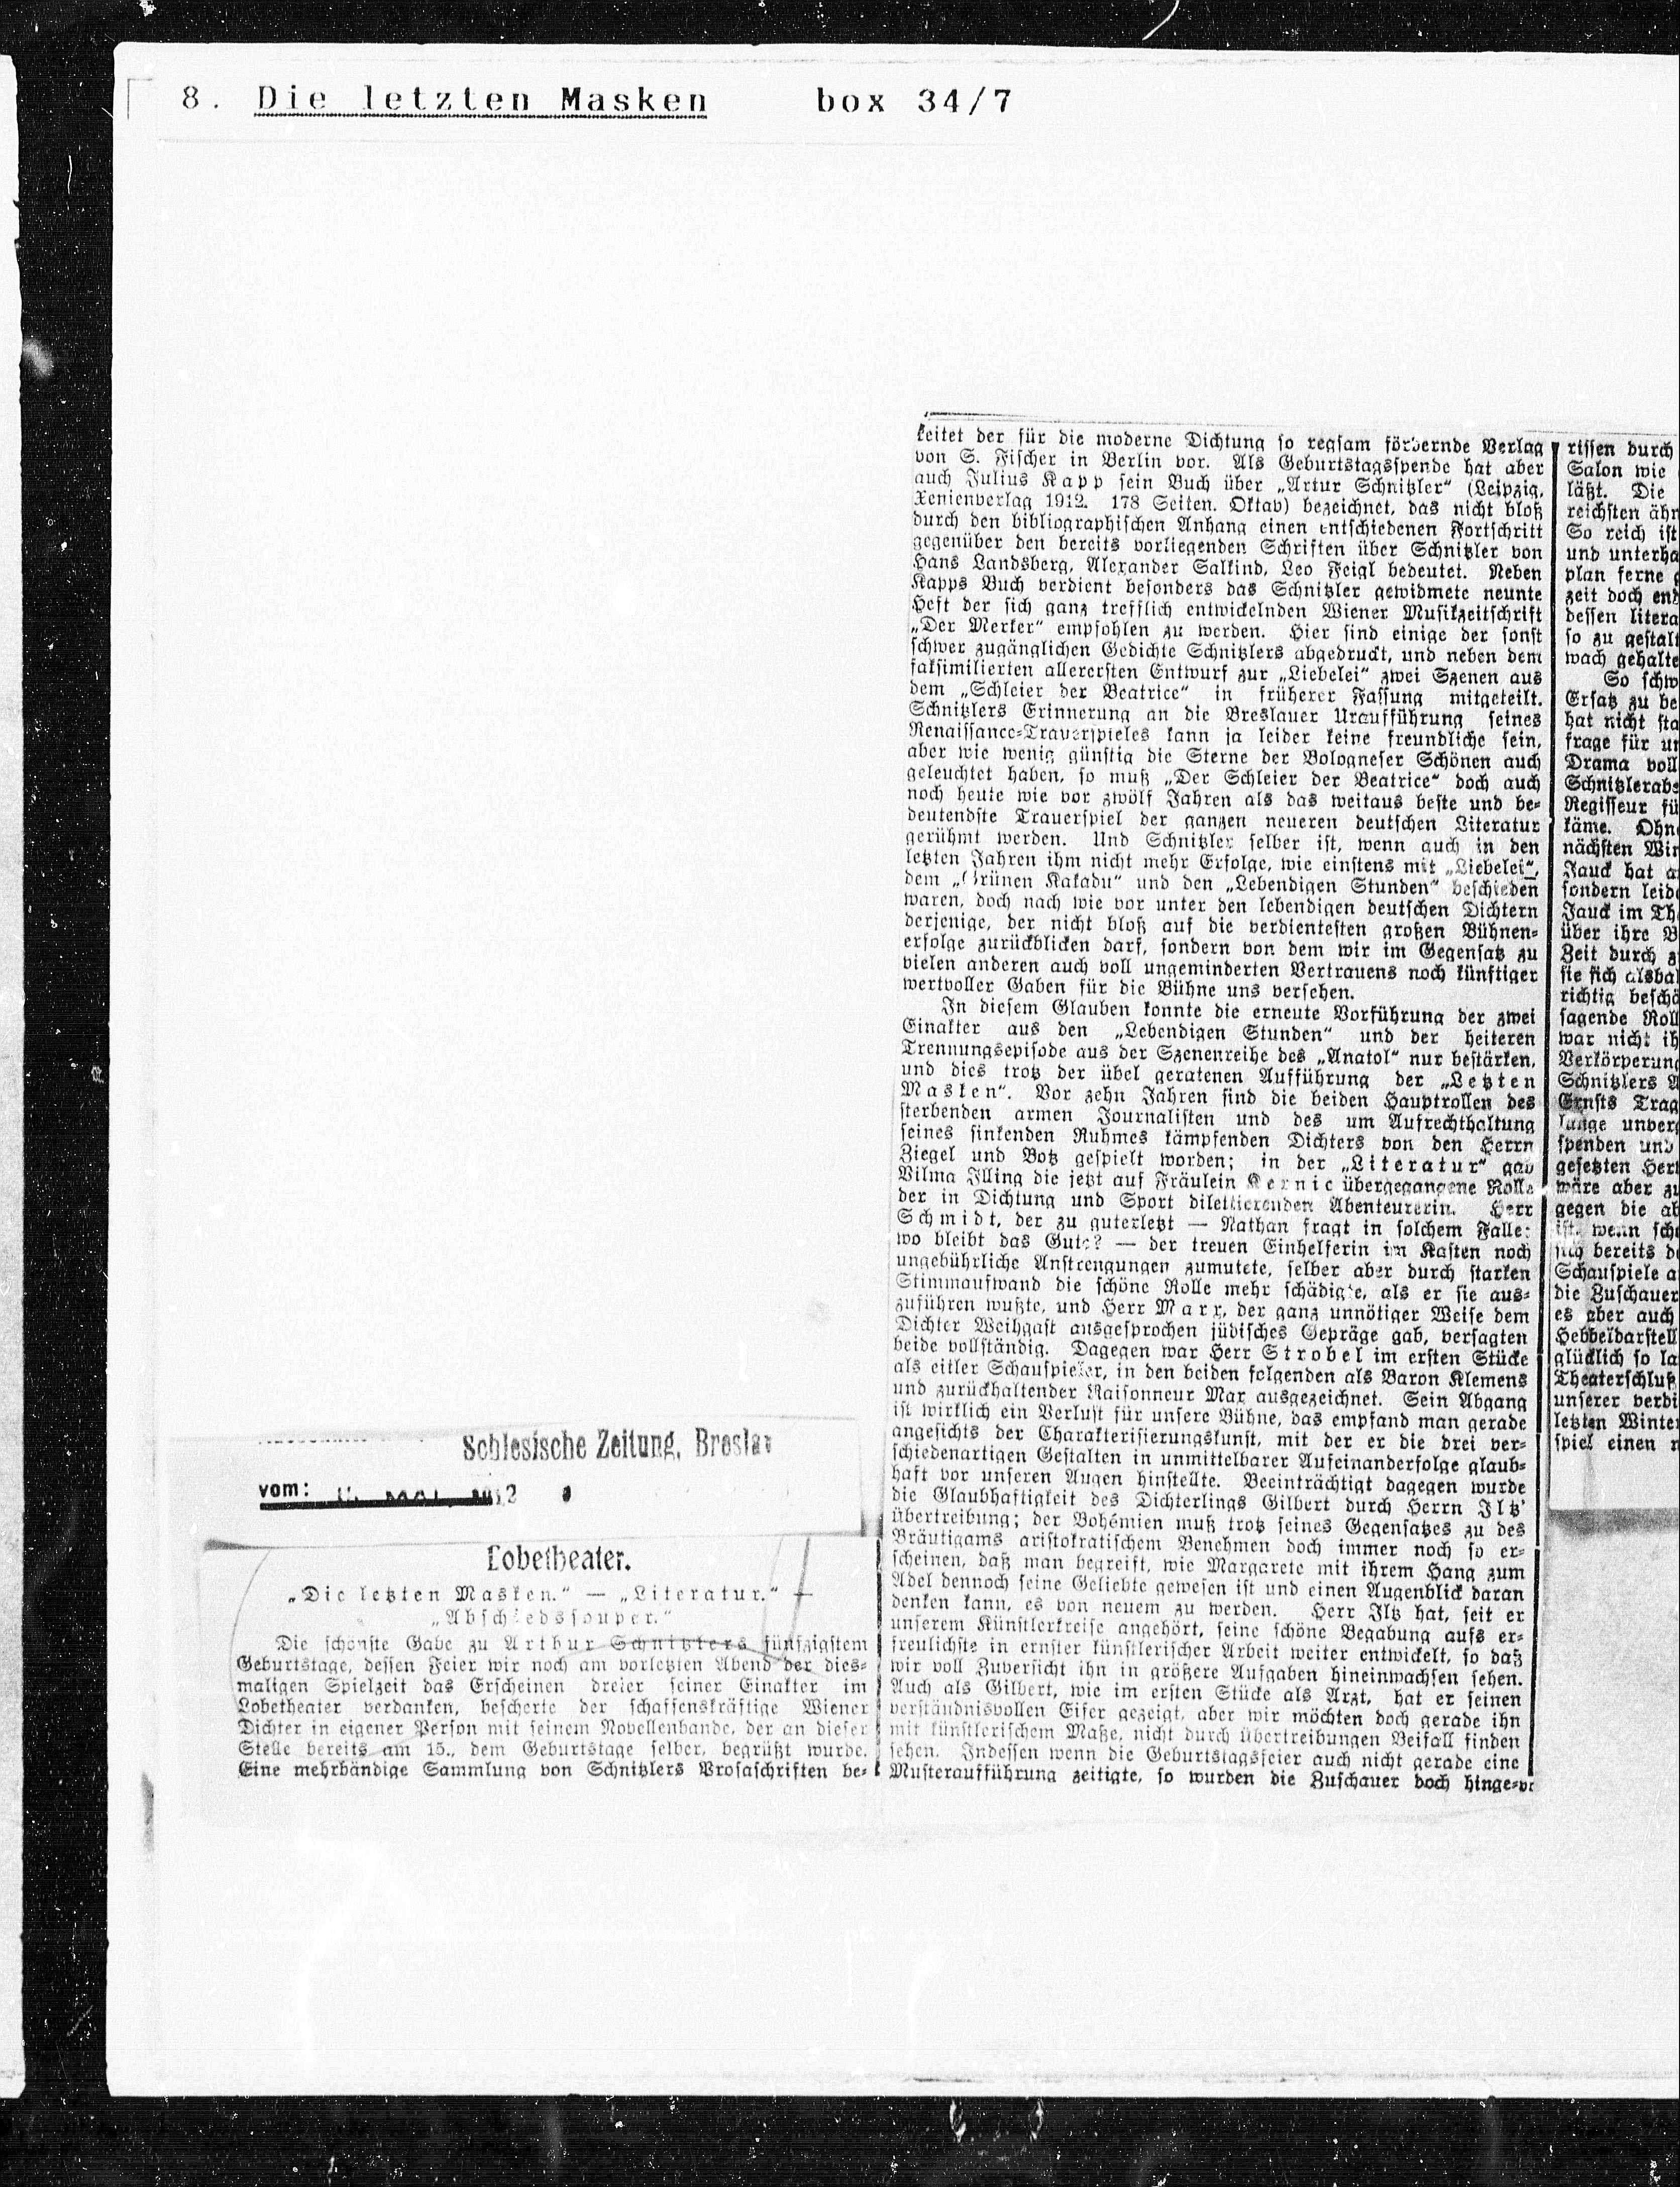 8. Die letzten Masken box 34/7
Schlesische Zeitung, Breslau
vom:
Lobetheater.
„Die letzten Masken.“ — „Literatur.“ —
„Abschiedssouper.“
Die schönste Gabe zu Arthur Schnitzlers fünfzigstem
Geburtstage, dessen Feier wir noch am vorletzten Abend der dies-
maligen Spielzeit das Erscheinen dreier seiner Einakter im
Lobetheater verdanken, bescherte der schaffenskräftige Wiener
Dichter in eigener Person mit seinem Novellenbande, der an dieser
Stelle bereits am 15., dem Geburtstage selber, begrüßt wurde.
Eine mehrbändige Sammlung von Schnitzlers Prosaschriften be-
reitet der für die moderne Dichtung so regsam fördernde Verlag
von S. Fischer in Berlin vor. Als Geburtstagsspende hat aber
auch Julius Kapp sein Buch über „Artur Schnitzler“ (Leipzig,
Xenienverlag 1912. 178 Seiten. Oktav) bezeichnet, das nicht bloß
durch den bibliographischen Anhang einen entschiedenen Fortschritt
gegenüber den bereits vorliegenden Schriften über Schnitzler von
Hans Landsberg, Alexander Salkind, Leo Feigl bedeutet. Neben
Kapps Buch verdient besonders das Schnitzler gewidmete neunte
Heft der sich ganz trefflich entwickelnden Wiener Musikzeitschrift
„Der Merker“ empfohlen zu werden. Hier sind einige der sonst
schwer zugänglichen Gedichte Schnitzlers abgedruckt, und neben dem
faksimilierten allerersten Entwurf zur „Liebelei“ zwei Szenen aus
dem „Schleier der Beatrice“ in früherer Fassung mitgeteilt.
Schnitzlers Erinnerung an die Breslauer Uraufführung seines
Renaissance-Trauerspieles kann ja leider keine freundliche sein,
aber wie wenig günstig die Sterne der Bologneser Schönen auch
geleuchtet haben, so muß „Der Schleier der Beatrice“ doch auch
noch heute wie vor zwölf Jahren als das weitaus beste und be-
deutendste Trauerspiel der ganzen neueren deutschen Literatur
gerühmt werden. Und Schnitzler selber ist, wenn auch in den
letzten Jahren ihm nicht mehr Erfolge, wie einstens mit „Liebelei“,
dem „Grünen Kakadu“ und den „Lebendigen Stunden“ beschieden
waren, doch nach wie vor unter den lebendigen deutschen Dichtern
derjenige, der nicht bloß auf die verdientesten großen Bühnen-
erfolge zurückblicken darf, sondern von dem wir im Gegensatz zu
vielen anderen auch voll ungeminderten Vertrauens noch künftiger
wertvoller Gaben für die Bühne uns versehen.
In diesem Glauben konnte die erneute Vorführung der zwei
Einakter aus den „Lebendigen Stunden“ und der heiteren
Trennungsepisode aus der Szenenreihe des „Anatol“ nur bestärken,
und dies trotz der übel geratenen Aufführung der „Letzten
Masken“. Vor zehn Jahren sind die beiden Hauptrollen des
sterbenden armen Journalisten und des um Aufrechthaltung
seines sinkenden Ruhmes kämpfenden Dichters von den Herrn
Ziegel und Botz gespielt worden; in der „Literatur“ gab
Vilma Illing die jetzt auf Fräulein Kernic übergegangene Rolle
der in Dichtung und Sport dilettierenden Abenteurerin. Herr
Schmidt, der zu guterletzt — Nathan fragt in solchem Falle:
wo bleibt das Gute? — der treuen Einhelferin im Kasten noch
ungebührliche Anstrengungen zumutete, selber aber durch starken
Stimmaufwand die schöne Rolle mehr schädigte, als er sie aus-
zuführen wußte, und Herr Marx, der ganz unnötiger Weise dem
Dichter Weihgast ausgesprochen jüdisches Gepräge gab, versagten
beide vollständig. Dagegen war Herr Strobel im ersten Stücke
als eitler Schauspieler, in den beiden folgenden als Baron Klemens
und zurückhaltender Raisonneur Max ausgezeichnet. Sein Abgang
ist wirklich ein Verlust für unsere Bühne, das empfand man gerade
angesichts der Charakterisierungskunst, mit der er die drei ver-
schiedenartigen Gestalten in unmittelbarer Aufeinanderfolge glaub-
haft vor unseren Augen hinstellte. Beeinträchtigt dagegen wurde
die Glaubhaftigkeit des Dichterlings Gilbert durch Herrn Iltz'
übertreibung; der Bohémien muß trotz seines Gegensatzes zu des
Bräutigams aristokratischem Benehmen doch immer noch so er-
scheinen, daß man begreift, wie Margarete mit ihrem Hang zum
Adel dennoch seine Geliebte gewesen ist und einen Augenblick daran
denken kann, es von neuem zu werden. Herr Iltz hat, seit er
unserem Künstlerkreise angehört, seine schöne Begabung aufs er-
freulichste in ernster künstlerischer Arbeit weiter entwickelt, so daß
wir voll Zuversicht ihn in größere Aufgaben hineinwachsen sehen.
Auch als Gilbert, wie im ersten Stücke als Arzt, hat er seinen
verständnisvollen Eifer gezeigt, aber wir möchten doch gerade ihn
mit künstlerischem Maße, nicht durch übertreibungen Beifall finden
sehen. Indessen wenn die Geburtstagsfeier auch nicht gerade eine
Musteraufführung zeitigte, so wurden die Zuschauer doch hinge-
rissen durch
Salon wie
läßt. Die
reichsten ähn
So reich ist
und unterha
plan ferne
zeit doch end
dessen litera
so zu gestalt
wach gehalte
So schw
Ersatz zu be
hat nicht sta
frage für un
Drama voll
Schnitzlerabe
Regisseur fü
käme. Ohn
nächsten Win
Jauck hat a
sondern leide
Jauck im Th
über ihre B
Zeit durch z
sie sich alsba
richtig beschä
sagende Roll
war nicht ih
Verkörperung
Schnitzlers A
Ernsts Trag
lange unverg
spenden und
gesetzten Her
wäre aber zu
gegen die ab
ist, wenn sch
sich bereits de
Schauspiele a
die Zuschauer
es aber auch
Hebbeldarstell
glücklich so la
Theaterschluß
unserer verdi
letzten Winte
spiel einen